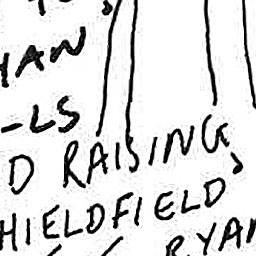 HAN
-LS
D RAISING,
HIELDFIELD
RYAN